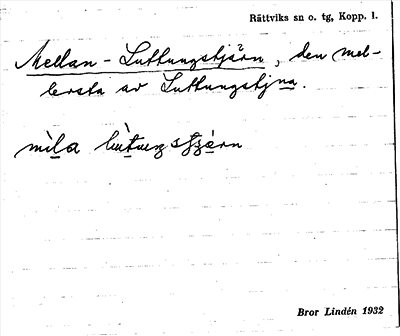 Rättviks sn o. tg, Kopp. l.
Mellan-Luttungstjärn, den mel-
lersta av Luttungstjna.
Bror Lindén 1932